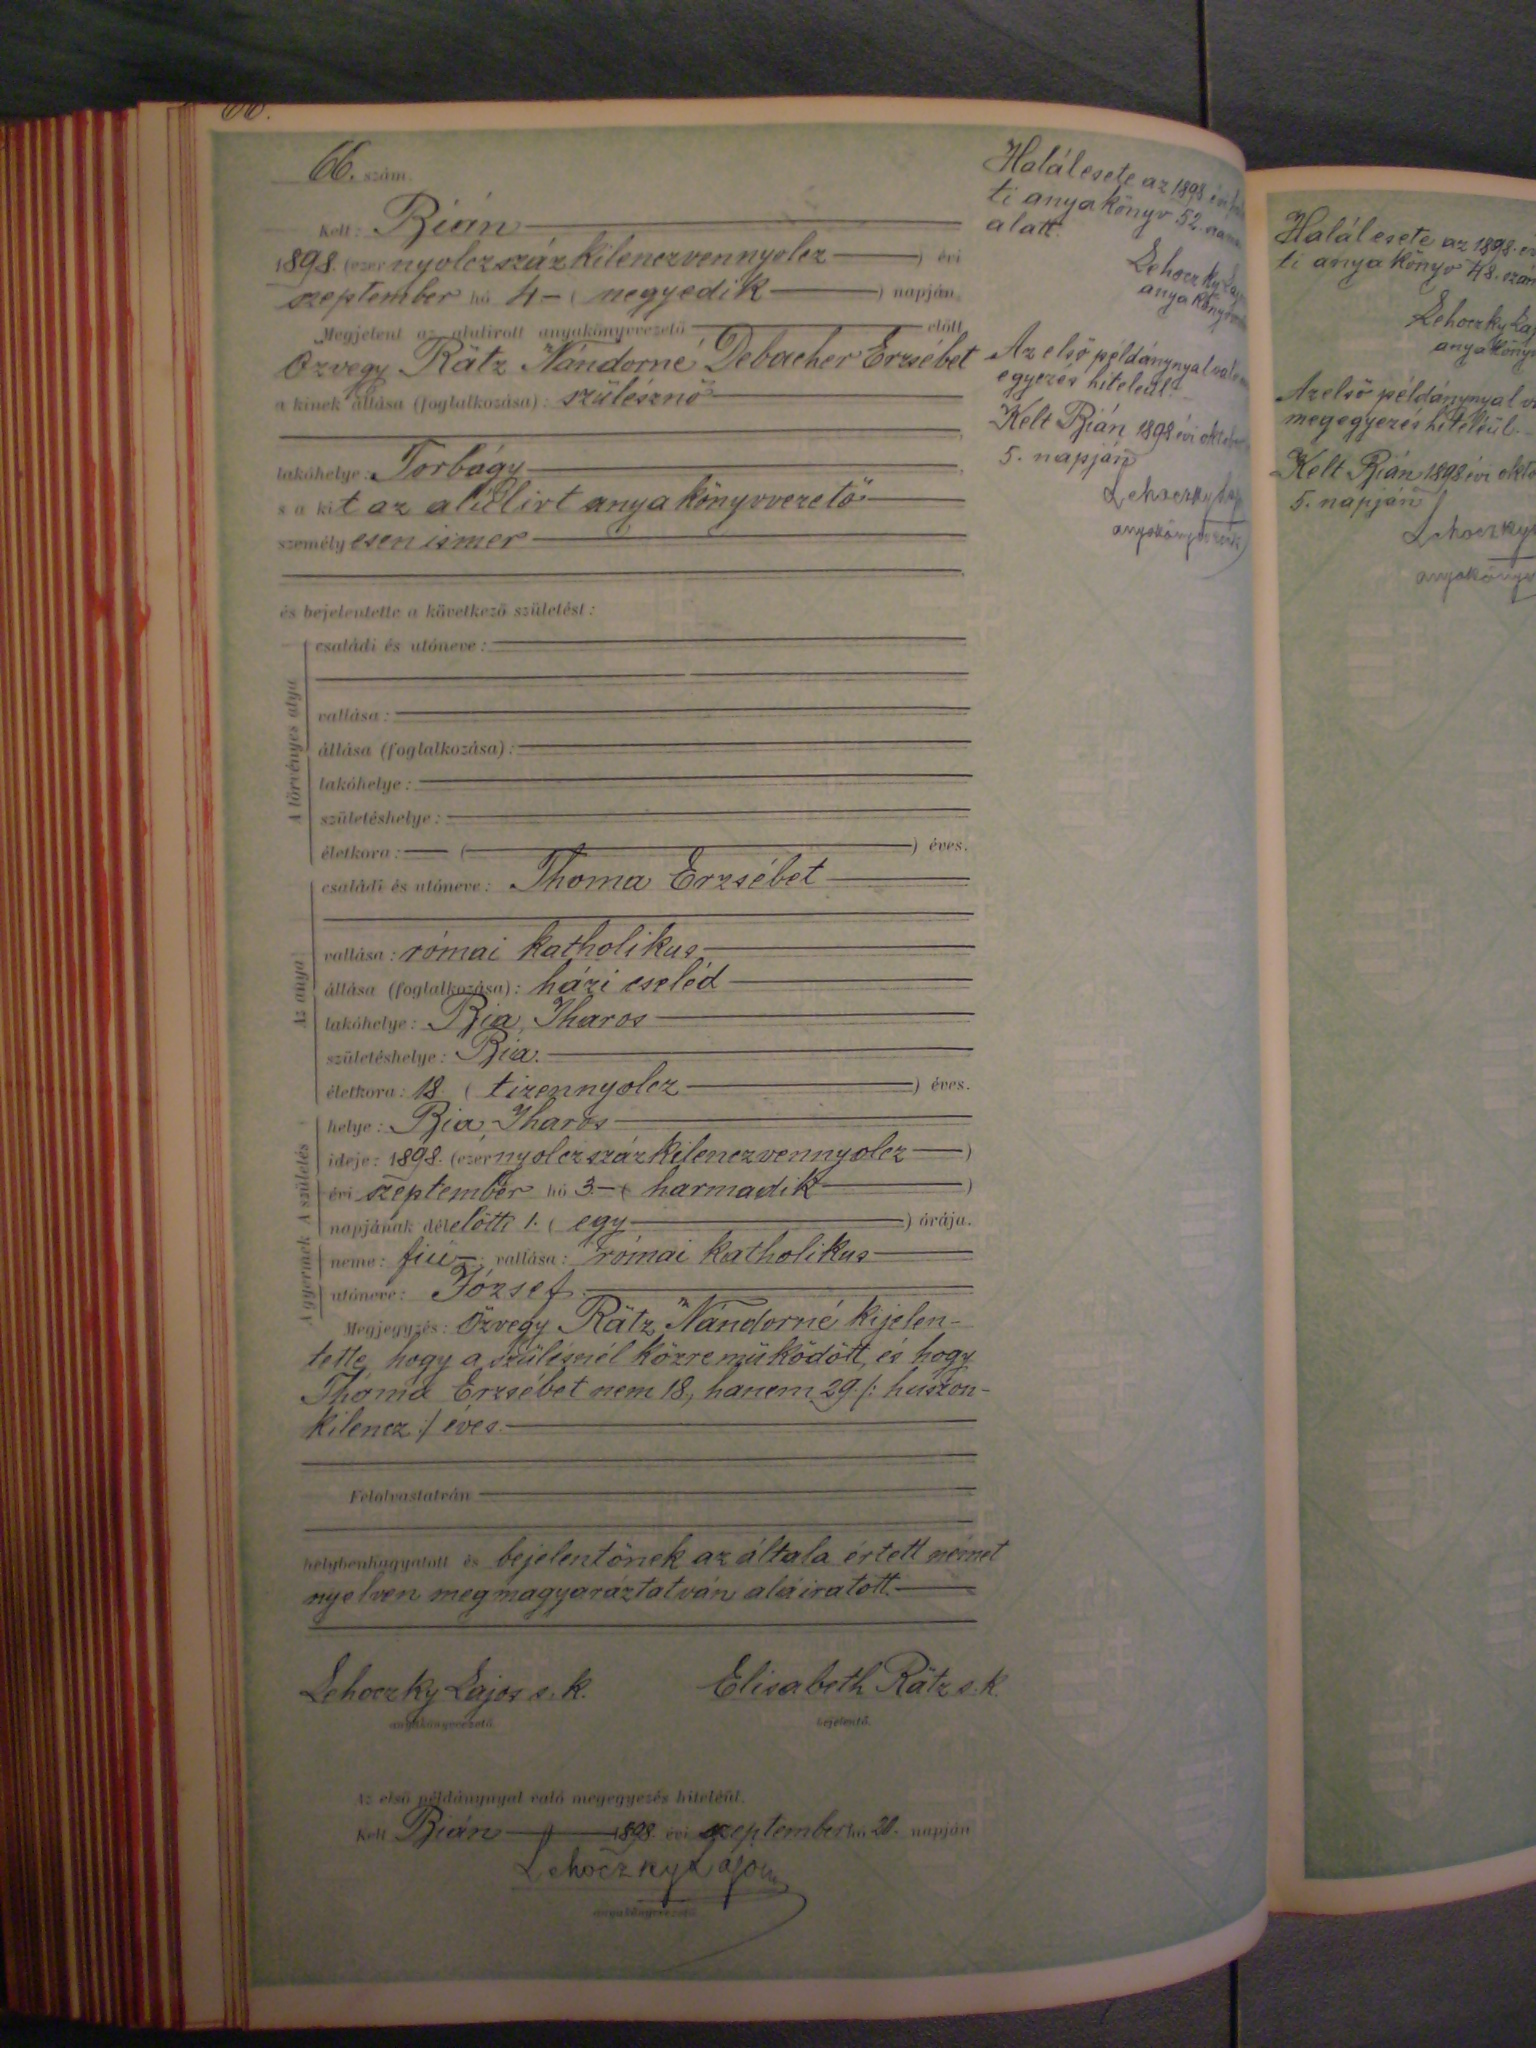 66.
66. szám.
Kelt: Bián
1898. (ezer nyolczszáz kilenczvennyolcz ) évi
szeptember hó 4 ( negyedik ) napján,
Megjelent az alulirott anyakönyvvezető előtt
özvegy Rátz Nándorné Debacher Erzsébet
a kinek állása (foglalkozása): szülésznő
lakóhelye: Torbágy
s a kit az alulirt anyakönyvvezető
személyesen ismer
és bejelentette a következő születést:
A törvényes atya
családi és utóneve:
vallása:
állása (foglalkozása):
lakóhelye:
születéshelye:
életkora: ( ) éves.
Az anya
családi és utóneve: Thoma Erzsébet
vallása: római katholikus
állása (foglalkozása): házi cseléd
lakóhelye: Bia, Iharos
születéshelye: Bia.
életkora: 18 ( tizennyolcz ) éves.
A születés
helye: Bia, Iharos
ideje: 1898. (ezer nyolczszáz kilenczvennyolcz )
évi szeptember hó 3. ( harmadik )
napjának délelőtti 1. ( egy ) órája.
A gyermek
neme: fiú; vallása: római katholikus
utóneve: József
Megjegyzés: özvegy Rátz Nándorné kijelen-
tette, hogy a szülésnél közreműködött, és hogy
Thoma Erzsébet nem 18, hanem 29 /: huszon-
kilencz :/ éves.
Felolvastatván
helybenhagyatott és bejelentőnek az általa értett német
nyelven megmagyaráztatván aláiratott.
Lehoczky Lajos s. k. Elisabeth Rätz s. k.
anyakönyvvezető. bejelentő.
Az első példánynyal való megegyezés hiteléül.
Kelt Bián 1898. évi szeptember hó 20. napján
Lehoczky Lajos
anyakönyvvezető.
Halálesete az 1898 évi
ti anyakönyv 52.
alatt.
Lehoczky
Az első példánynyal való
egyezés hiteleül.
Kelt Bián 1898 évi október
5. napján
Lehoczky
anyakönyvvezető
Halálesete az 1898.
ti anyakönyv 48. szám
Lehoczky
Az első példánynyal
megegyezés hiteléül.
Kelt Bián 1898 évi
5. napján
Lehoczky